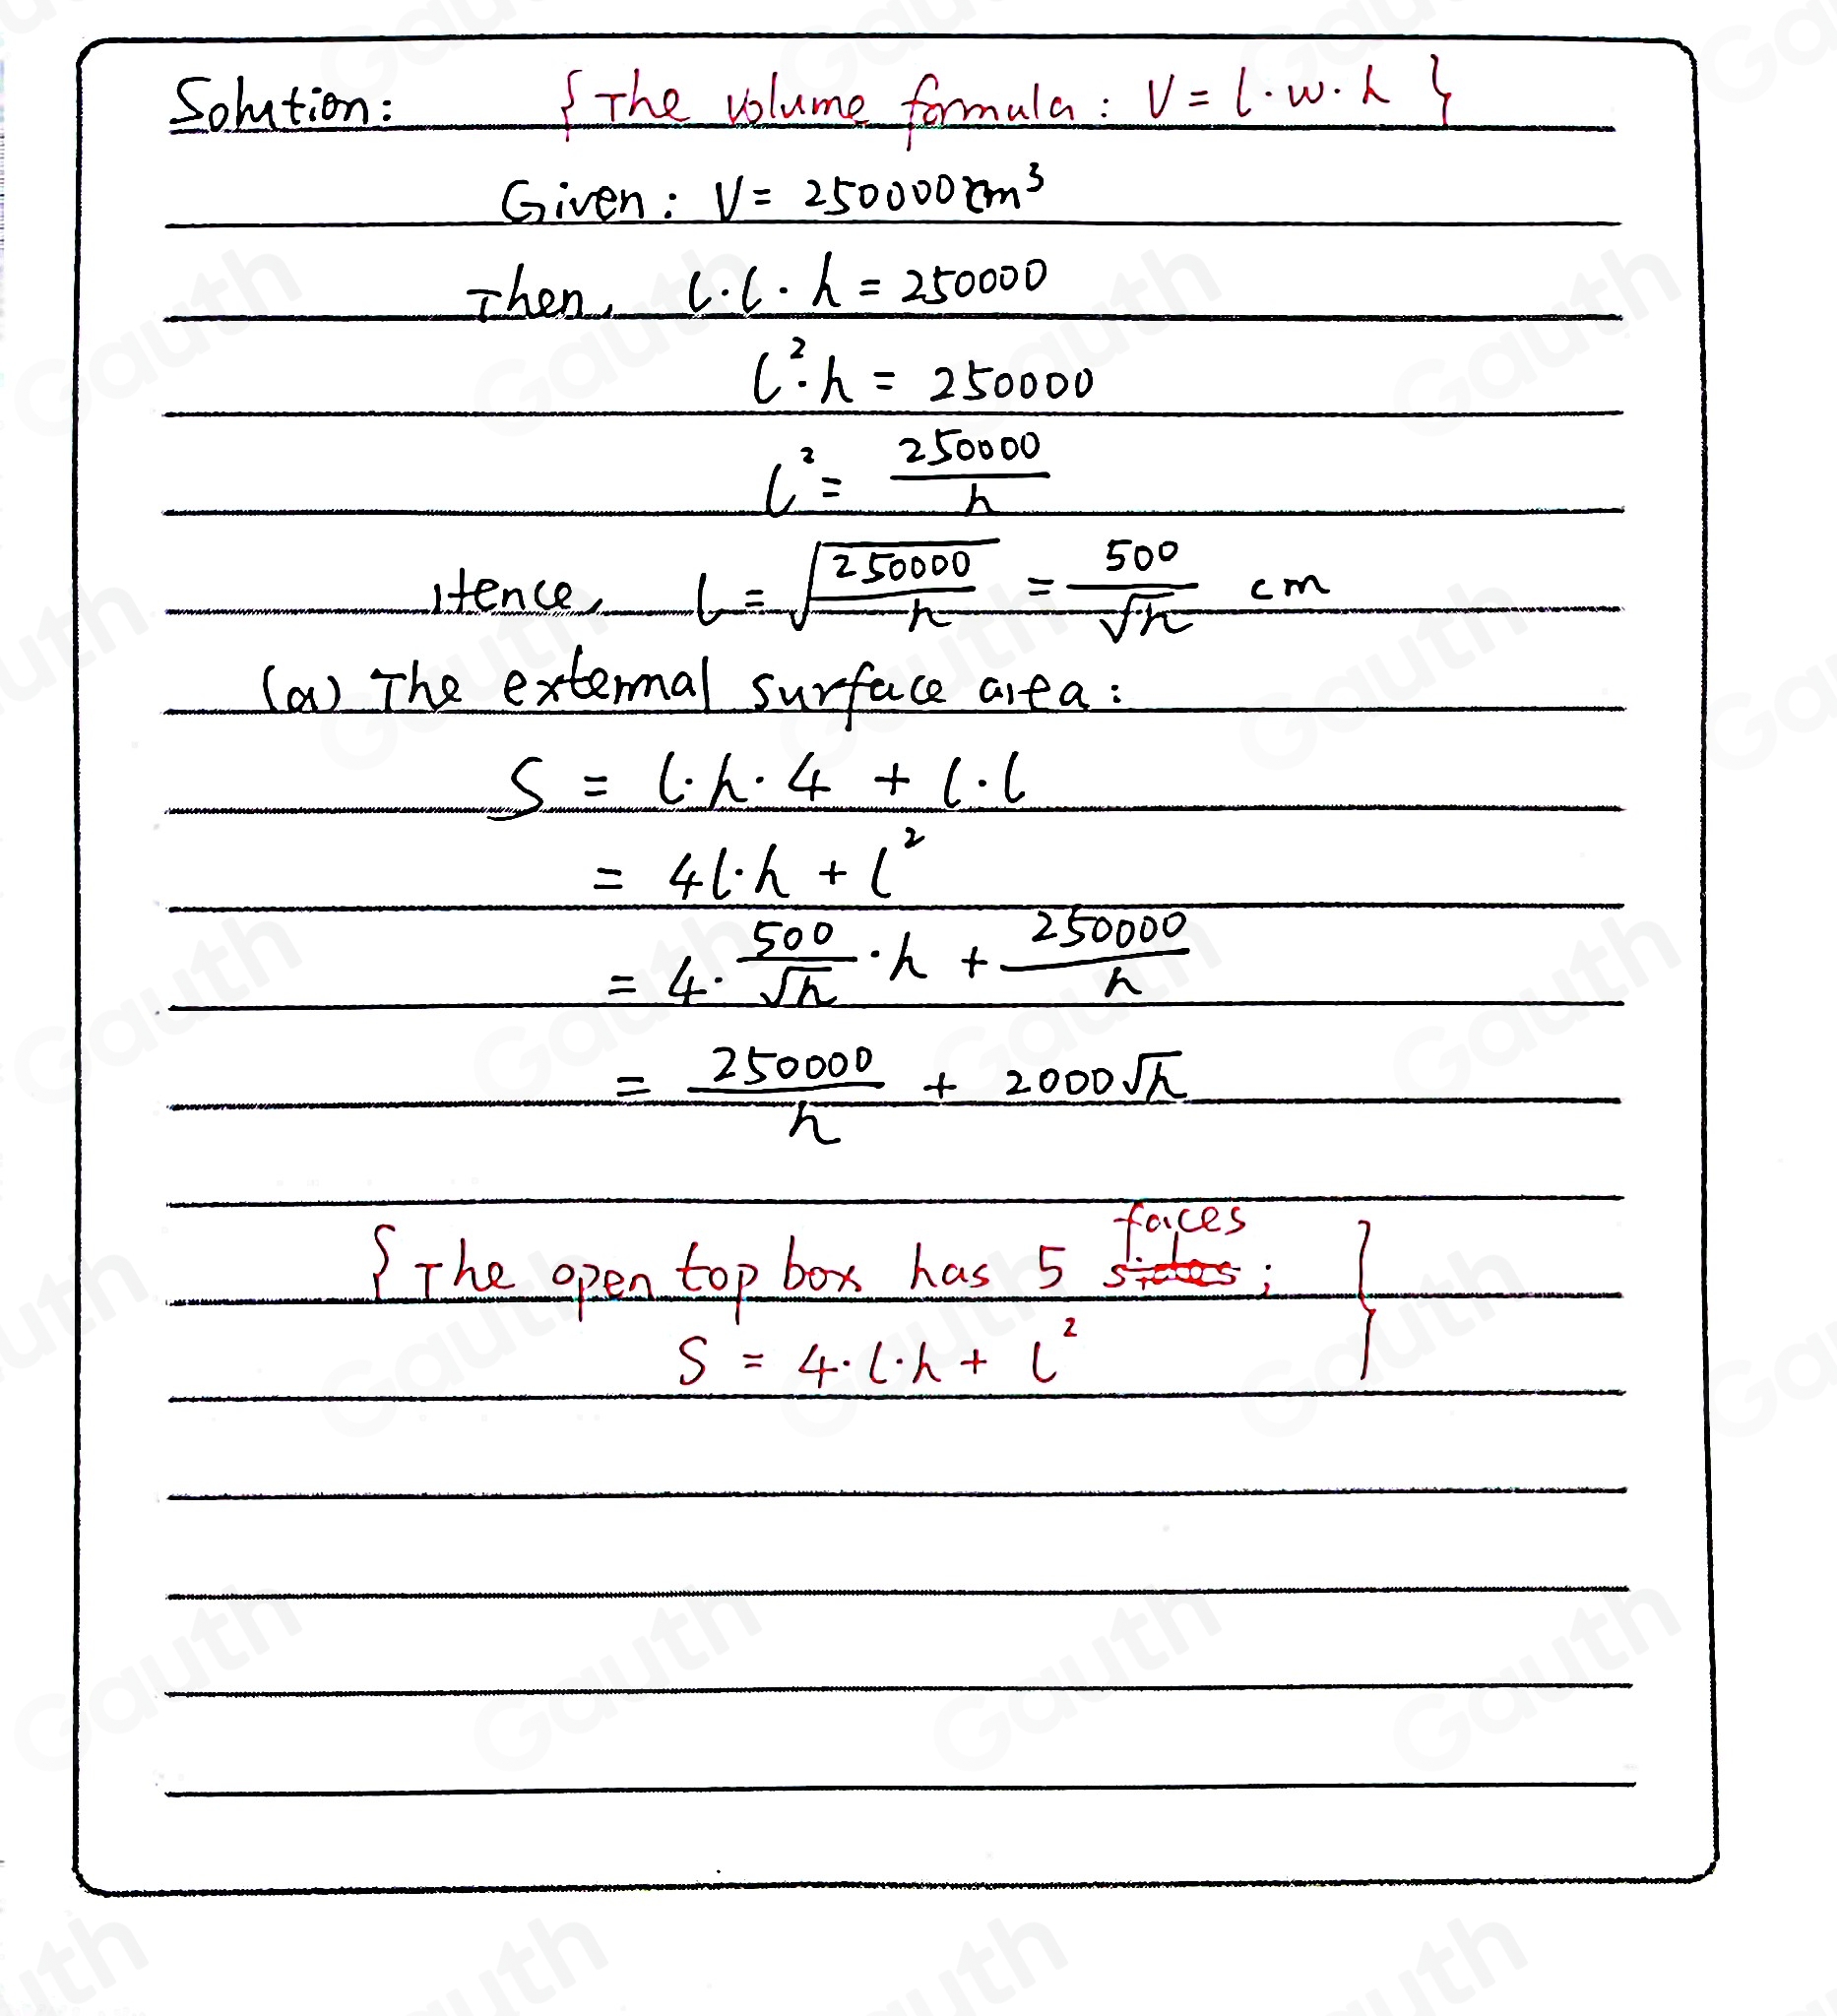 Solution: {The volume formula: V = l·w·h}
Given: V = 250000 cm³
Then, l·l·h = 250000
l²·h = 250000
l² = 250000/h
Hence, l = √(250000/h) = 500/√h cm
(a) The external surface area:
S = l·h·4 + l·l
= 4l·h + l²
= 4·500/√h·h + 250000/h
= 250000/h + 2000√h
{The open top box has 5 faces;
S = 4·l·h + l²}